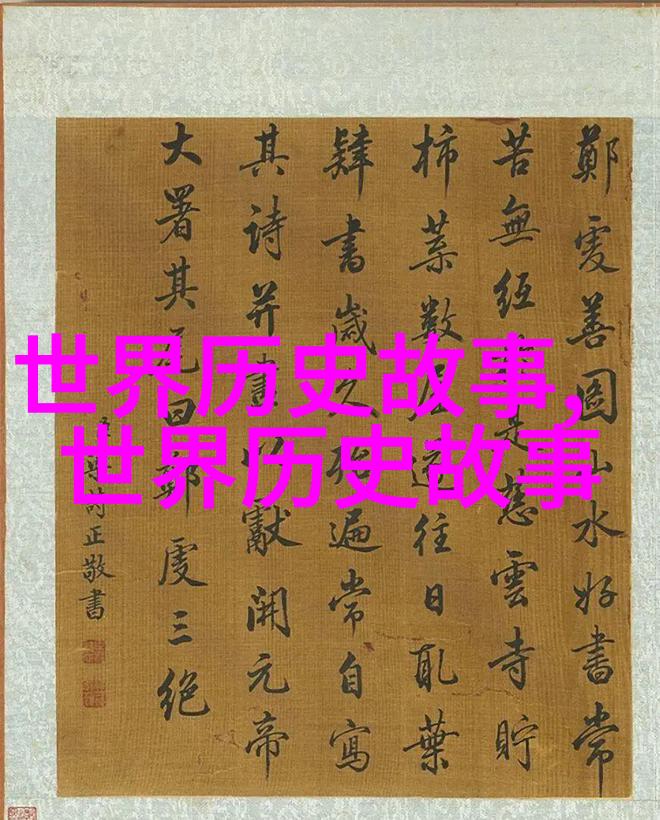 世界历史故事,
世界历史故事
鄭虔善圖山水好書常
苦無紙是慈雲寺貯
柿葉數屋遂往日取葉
肄書歲久殆遍常自寫
其詩并畫以獻開元帝
大署其尾曰鄭虔三絕
正敬書